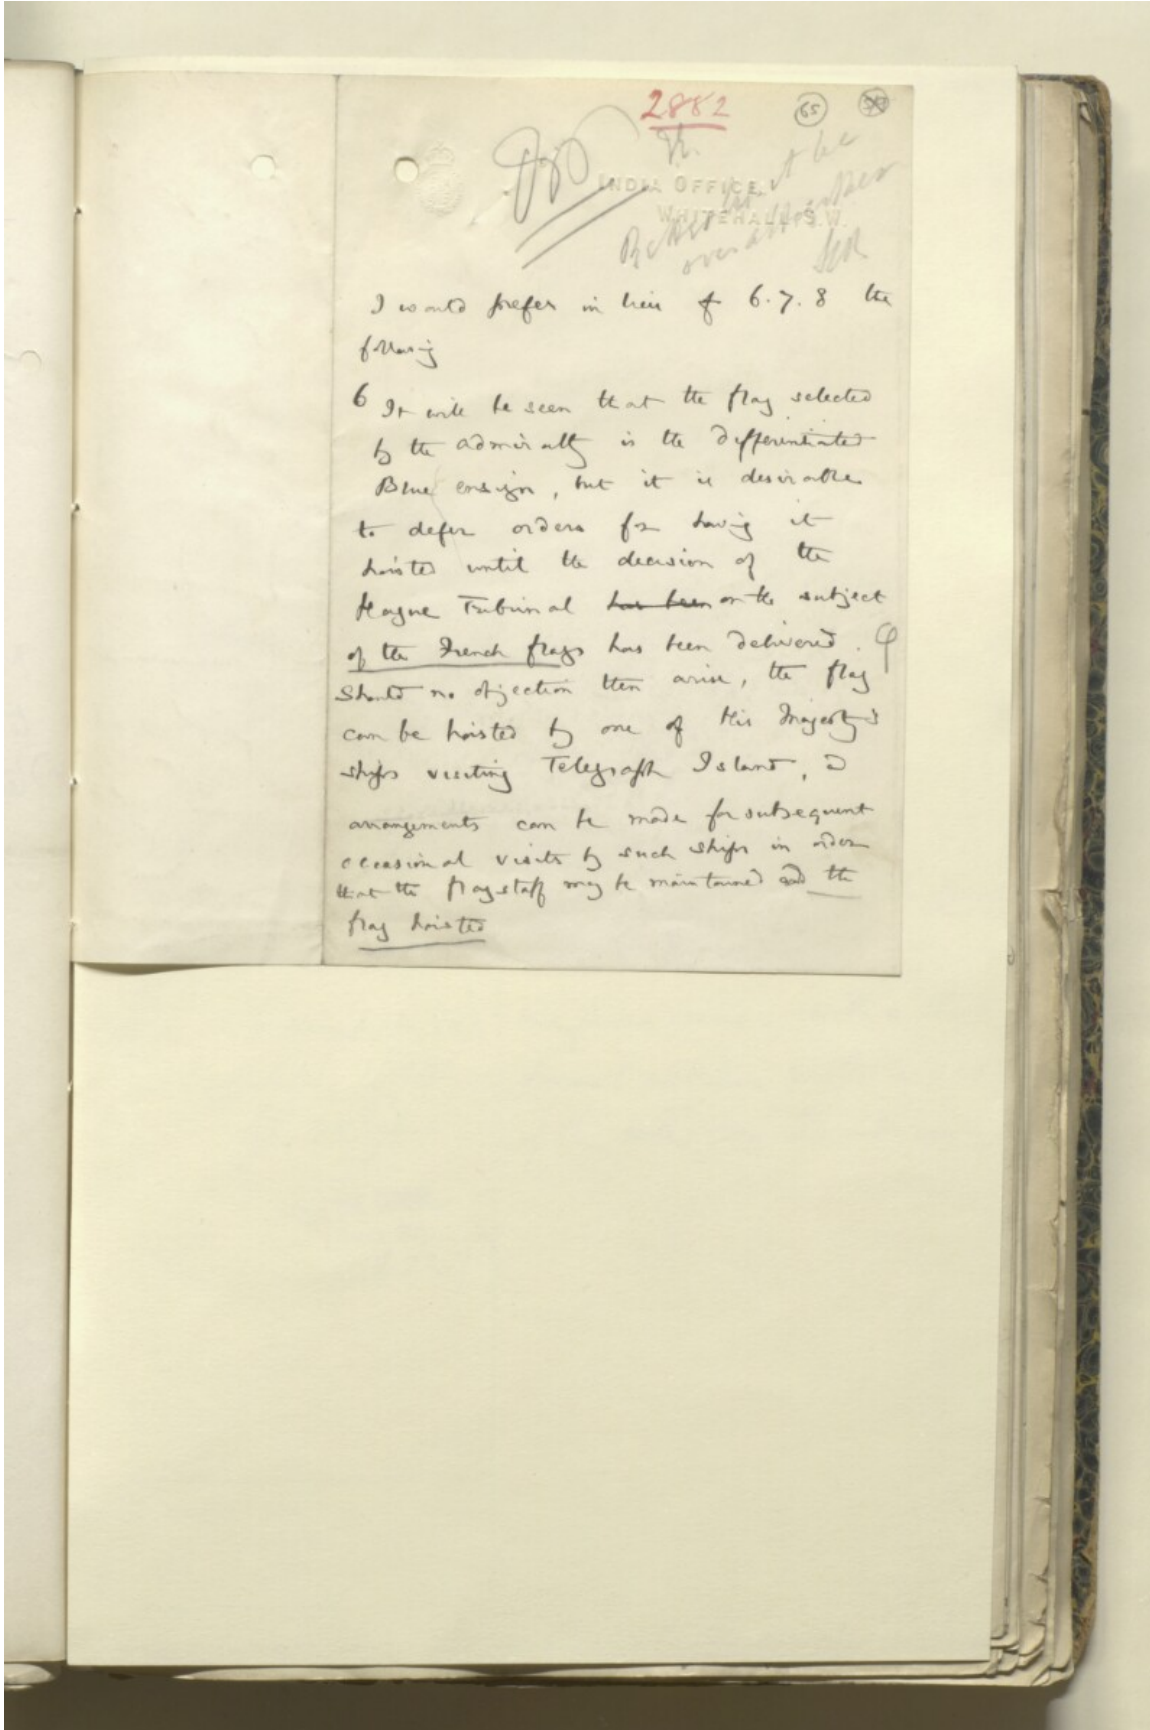 2882
65
INDIA OFFICE,
WHITEHALL, S.W.
I would prefer in lieu of 6.7.8 the
following
6 It will be seen that the flag selected
by the Admiralty is the differentiated
Blue ensign, but it is desirable
to defer orders for having it
hoisted until the decision of the
Hague Tribunal has been on the subject
of the French flags has been delivered.
Should no objection then arise, the flag
can be hoisted by one of His Majesty's
ships visiting Telegraph Island, &
arrangements can be made for subsequent
occasional visits by such ships in order
that the flagstaff may be maintained and the
flag hoisted